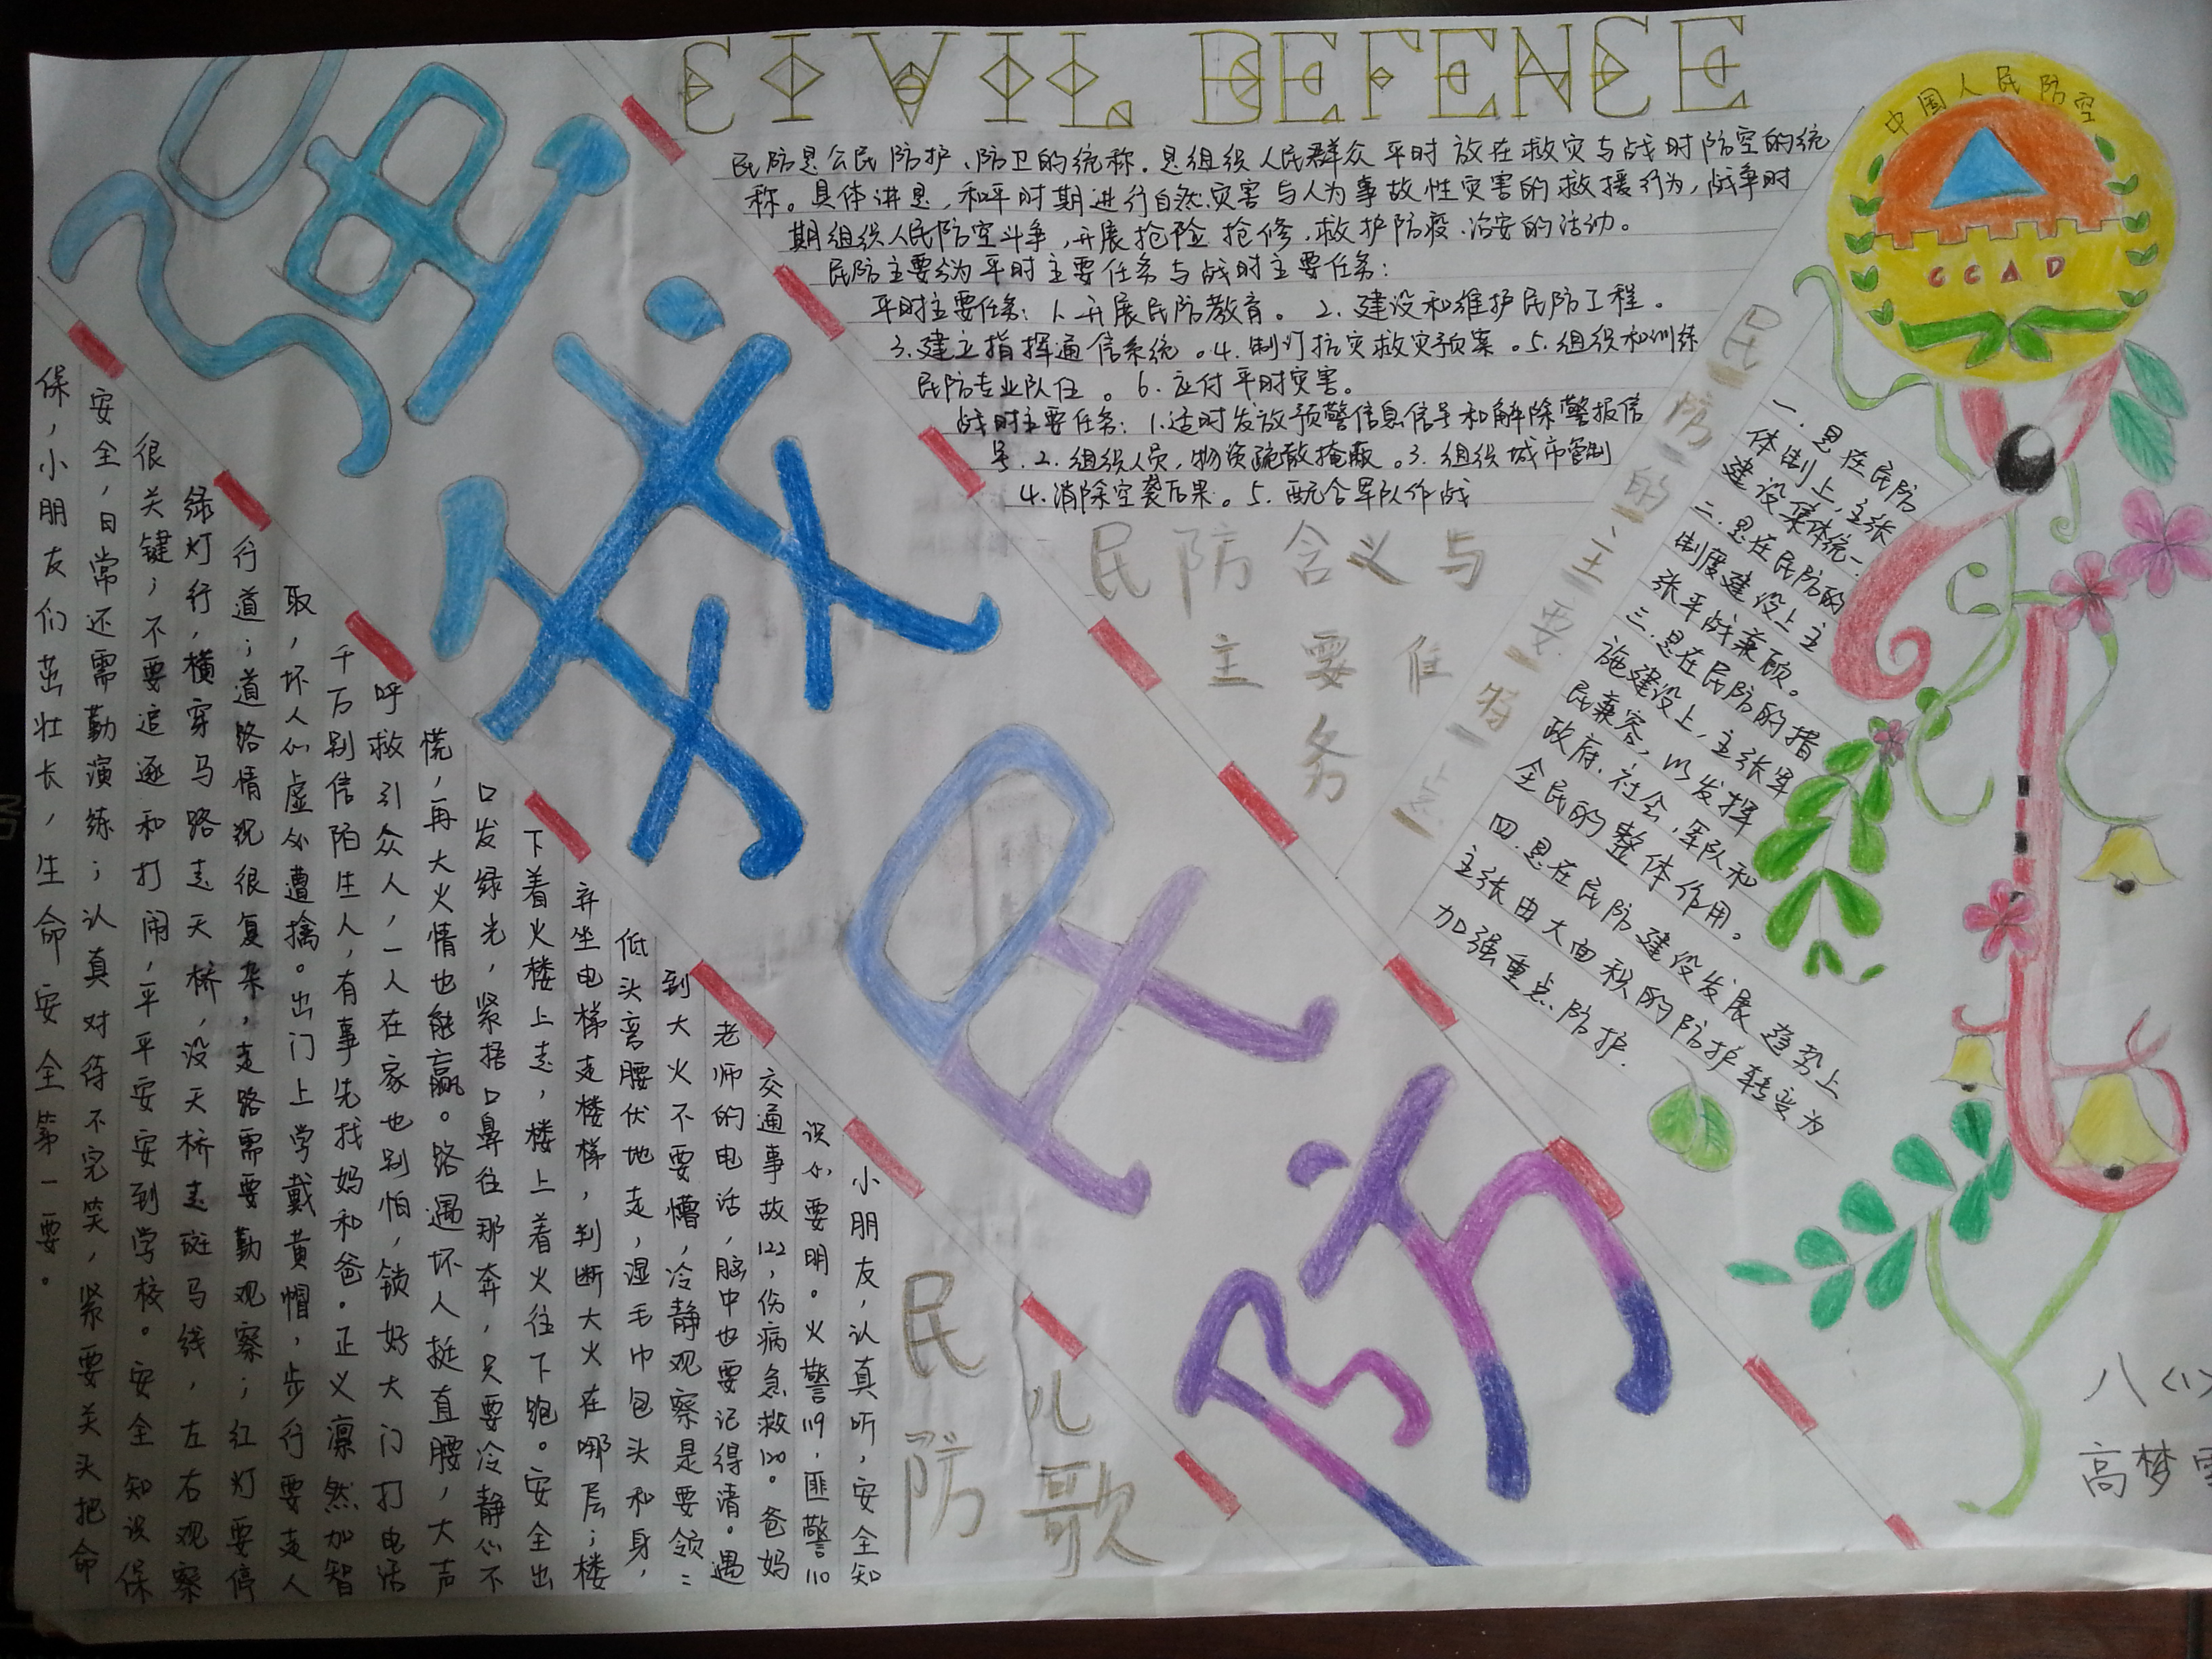 CIVIL DEFENCE
民防是公民防护、防卫的统称.是组织人民群众平时放在救灾与战时防空的统
称。具体讲是,和平时期进行自然灾害与人为事故性灾害的救援行为,战争时
期组织人民防空斗争,开展抢险抢修、救护防疫、治安的活动。
民防主要分为平时主要任务与战时主要任务:
平时主要任务:1.开展民防教育。2.建设和维护民防工程。
3.建立指挥通信系统。4.制订抗灾救灾预案。5.组织和训练
民防专业队伍。6.应付平时灾害。
战时主要任务:1.适时发放预警信息信号和解除警报信
号.2.组织人员,物资疏散掩蔽。3.组织城市管制
4.消除空袭后果。5.配合军队作战
民防含义与
主要任
务
中国人民防空
CCAD
民防的主要特点
一.是在民防
体制上,主张
建设集体统一.
二.是在民防的
制度建设上主
张平战兼顾。
三.是在民防的措
施建设上,主张军
民兼容,以发挥
政府.社会.军队和
全民的整体作用。
四.是在民防建设发展趋势上
主张由大面积的防护转变为
加强重点防护.
强我民防
民防
儿歌
小朋友,认真听,安全知
识心要明。火警119,匪警110
交通事故122,伤病急救120。爸妈
老师的电话,脑中也要记得清。遇
到大火不要懵,冷静观察是要领:
低头弯腰伏地走,湿毛巾包头和身,
弃坐电梯走楼梯,判断大火在哪层;楼
下着火楼上走,楼上着火往下跑。安全出
口发绿光,紧捂口鼻往那奔,只要冷静心不
慌,再大火情也能赢。路遇坏人挺直腰,大声
呼救引众人,一人在家也别怕,锁好大门打电话
千万别信陌生人,有事先找妈和爸。正义凛然加智
取,坏人心虚必遭擒。出门上学戴黄帽,步行要走人
行道;道路情况很复杂,走路需要勤观察;红灯要停
绿灯行,横穿马路走天桥,没天桥走斑马线,左右观察
很关键;不要追逐和打闹,平平安安到学校。安全知识保
安全,日常还需勤演练;认真对待不完笑,紧要关头把命
保,小朋友们茁壮长,生命安全第一要。
八(1)
高梦雪